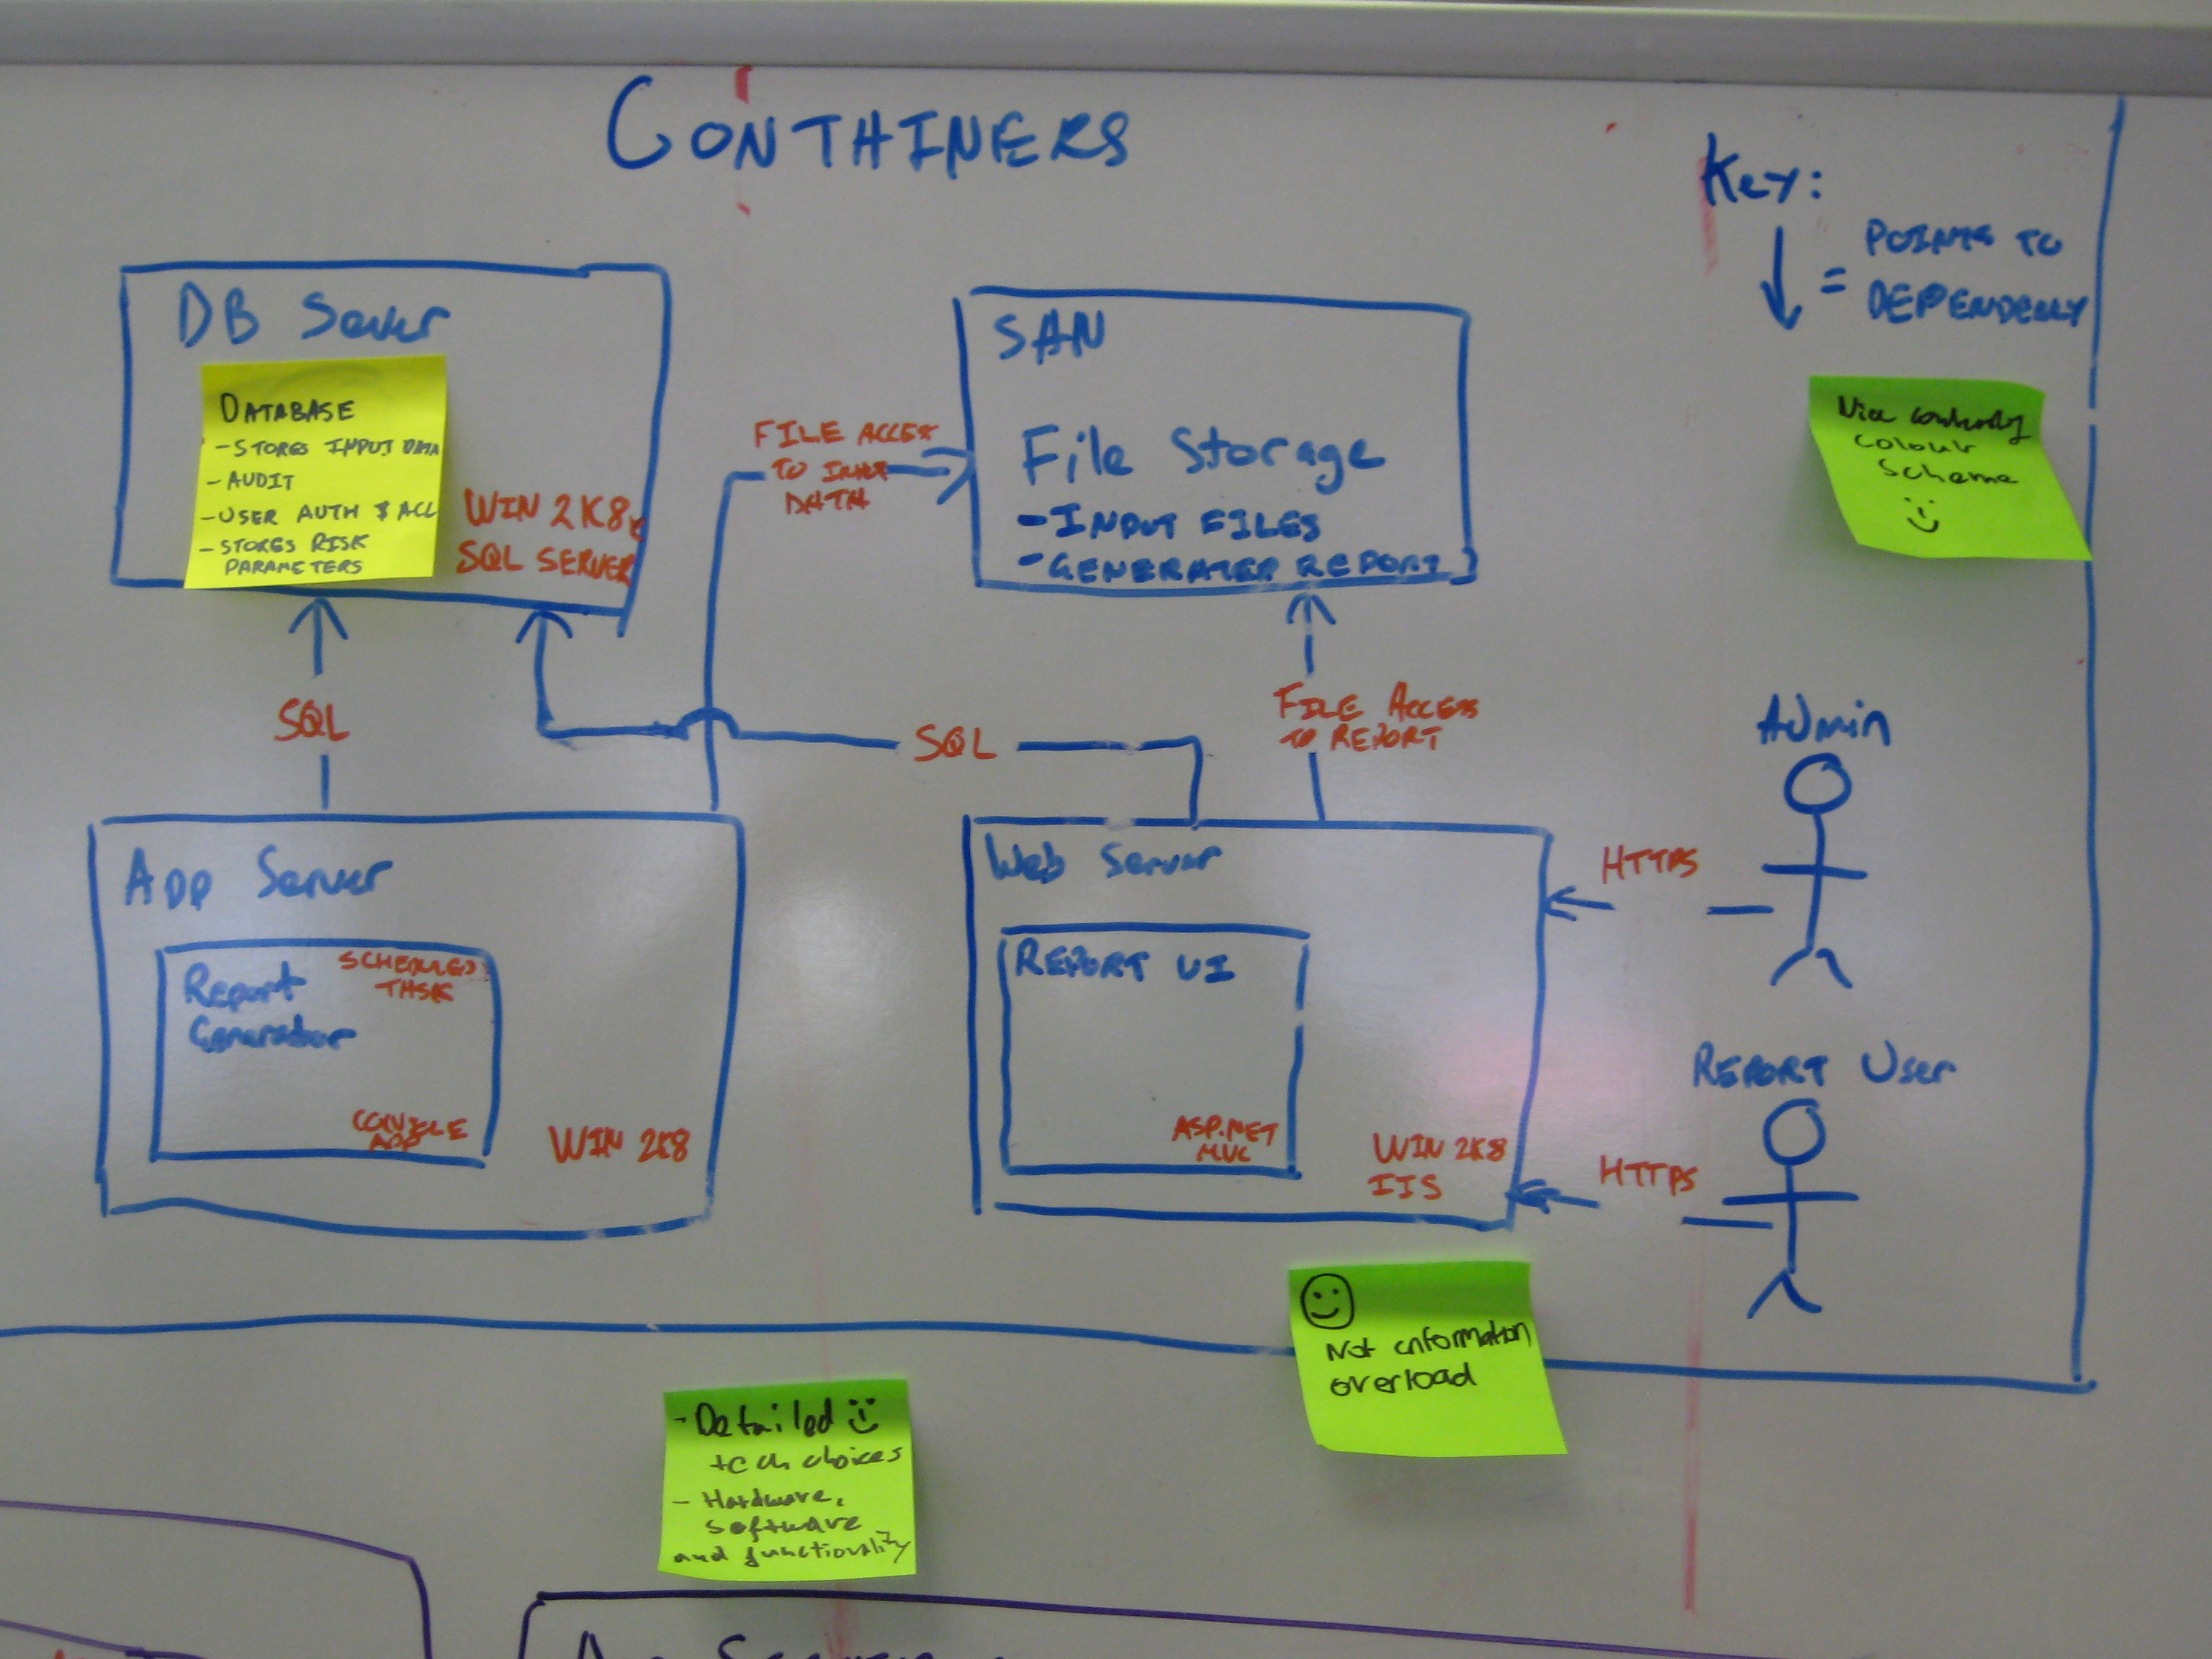 CONTAINERS
Key:
↓ = POINTS TO
DEPENDENCY
DB Server
DATABASE
- STORES INPUT DATA
- AUDIT
- USER AUTH & ACL
- STORES RISK
PARAMETERS
WIN 2K8
SQL SERVER
FILE ACCESS
TO INPUT
DATA
SAN
File Storage
- INPUT FILES
- GENERATED REPORT
colour
Scheme
SQL
SQL
FILE ACCESS
TO REPORT
Admin
HTTPS
App Server
Report
Generator
SCHEDULED
TASK
CONSOLE
APP
WIN 2K8
Web Server
REPORT UI
ASP.NET
MVC
WIN 2K8
IIS
REPORT User
HTTPS
Not information
overload
- Detailed
tech choices
- Hardware,
software
and functionality